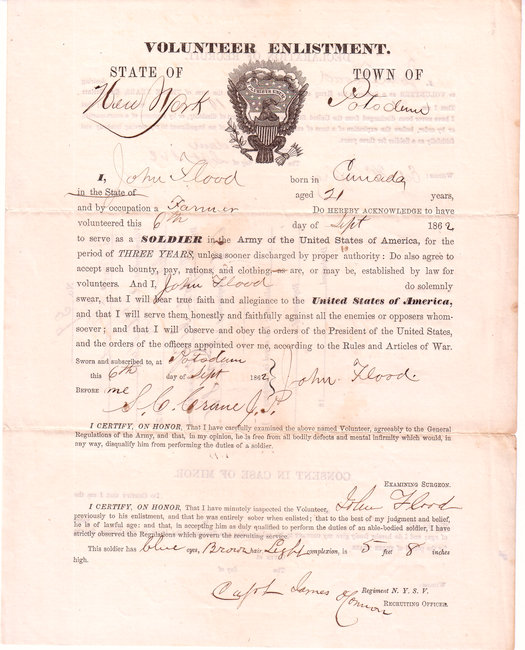 VOLUNTEER ENLISTMENT.
STATE OF TOWN OF
New York Potsdam
I, John Flood born in Canada
in the State of aged 21 years,
and by occupation a Farmer Do HEREBY ACKNOWLEDGE to have
volunteered this 6th day of Sept 1862
to serve as a SOLDIER in the Army of the United States of America, for the
period of THREE YEARS, unless sooner discharged by proper authority: Do also agree to
accept such bounty, pay, rations, and clothing, as are, or may be, established by law for
volunteers. And I, John Flood do solemnly
swear, that I will bear true faith and allegiance to the United States of America,
and that I will serve them honestly and faithfully against all the enemies or opposers whom-
soever; and that I will observe and obey the orders of the President of the United States,
and the orders of the officers appointed over me, according to the Rules and Articles of War.
Sworn and subscribed to, at Potsdam
this 6th day of Sept 1862 John Flood.
BEFORE me
S. C. Crane J. P.
I CERTIFY, ON HONOR, That I have carefully examined the above named Volunteer, agreeably to the General
Regulations of the Army, and that, in my opinion, he is free from all bodily defects and mental infirmity which would, in
any way, disqualify him from performing the duties of a soldier.
EXAMINING SURGEON.
I CERTIFY, ON HONOR, That I have minutely inspected the Volunteer, John Flood
previously to his enlistment, and that he was entirely sober when enlisted; that to the best of my judgment and belief,
he is of lawful age; and that, in accepting him as duly qualified to perform the duties of an able-bodied soldier, I have
strictly observed the Regulations which govern the recruiting service.
This soldier has blue eyes, Brown hair Light complexion, is 5 feet 8 inches
high.
Capt James
Regiment N. Y. S. V.
RECRUITING OFFICER.